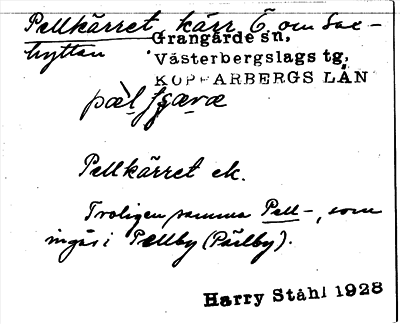 Pellkärret kärr Ö om Sax-
hyttan
Grangärde sn,
Västerbergslags tg,
KOPPARBERGS LÄN
Pellkärret ek.
Troligen samma Pell-, som
ingår i Pellby (Pärlby).
Harry Ståhl 1928